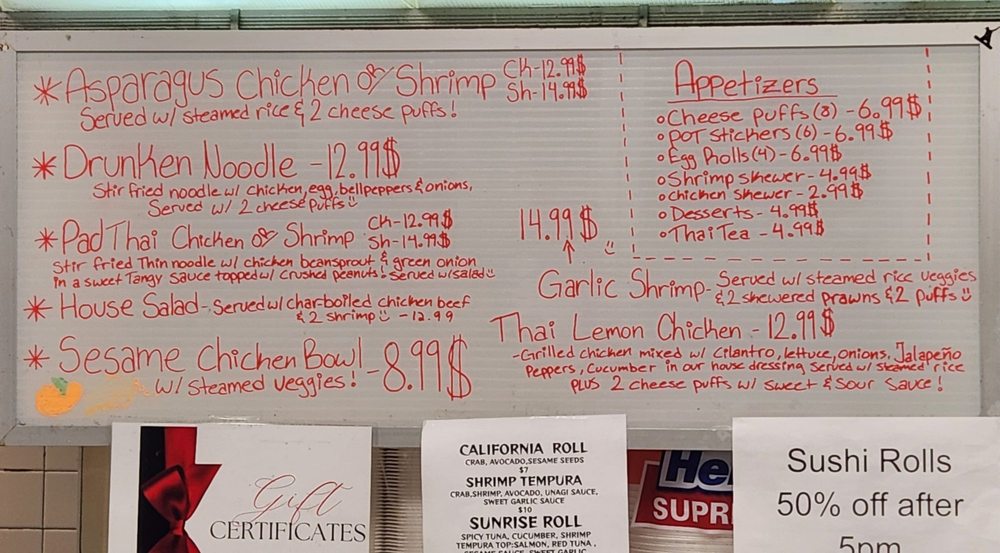 * Asparagus Chicken or Shrimp Ck-12.99$
Sh-14.99$
Served w/ steamed rice & 2 cheese puffs!
* Drunken Noodle - 12.99$
Stir fried noodle w/ chicken, egg, bellpeppers & onions,
Served w/ 2 cheese puffs
* Pad Thai Chicken or Shrimp Ck-12.99$
Sh-14.99$
Stir fried Thin noodle w/ chicken beansprout & green onion
in a sweet Tangy sauce topped w/ crushed peanuts! Served w/ salad
* House Salad - Served w/ charboiled chicken beef
& 2 shrimp - 12.99
* Sesame Chicken Bowl - 8.99$
w/ Steamed Veggies!
Appetizers
Cheese puffs (8) - 6.99$
POT Stickers (6) - 6.99$
Egg Rolls (4) - 6.99$
Shrimp skewer - 4.99$
chicken skewer - 2.99$
Desserts - 4.99$
Thai Tea - 4.99$
14.99$
Garlic Shrimp - Served w/ steamed rice veggies
& 2 skewered prawns & 2 puffs
Thai Lemon Chicken - 12.99$
-Grilled chicken mixed w/ cilantro, lettuce, onions, Jalapeño
Peppers, Cucumber in our house dressing served w/ steamed rice
PLUS 2 cheese puffs w/ sweet & sour sauce!
Gift
CERTIFICATES
CALIFORNIA ROLL
CRAB, AVOCADO, SESAME SEEDS
$7
SHRIMP TEMPURA
CRAB, SHRIMP, AVOCADO, UNAGI SAUCE,
SWEET GARLIC SAUCE
$10
SUNRISE ROLL
SPICY TUNA, CUCUMBER, SHRIMP
TEMPURA TOP:SALMON, RED TUNA,
SESAME SAUCE, SWEET GARLIC
He
SUPR
Sushi Rolls
50% off after
5pm